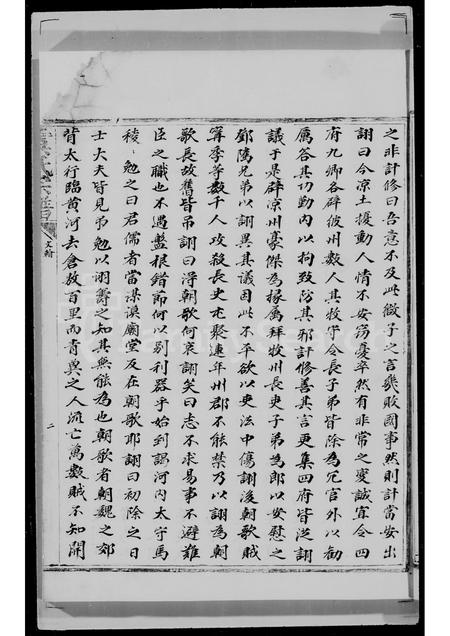 之非計修曰吾意不及此微子之言幾敗國事然則計當安出
詡曰今凉土擾動人情不安竊憂卒然有非常之變誠宜令四
府九卿各辟彼州數人其牧守令長子弟皆除為冗官外以勸
厲答其功勤內以拘致防其邪計修善其言更集四府皆從詡
議于是辟凉州豪傑為掾屬拜牧州長吏子弟為郎以安慰之
鄧隲兄弟以詡異其議因此不平欲以吏法中傷詡後朝歌賊
甯季等數千人攻殺長吏屯聚連年州郡不能禁乃以詡為朝
歌長故舊皆吊詡曰得朝歌何衰詡笑曰志不求易事不避難
臣之職也不遇盤根錯節何以別利器乎始到謁河內太守馬
稜稜勉之曰君儒者當謀謨廟堂反在朝歌耶詡曰初除之日
士大夫皆見弔勉以詡籌之知其無能為也朝歌者韓魏之郊
背太行臨黃河去倉敖百里而青冀之人流亡萬數賊不知開
文翰
二
FamilySearch